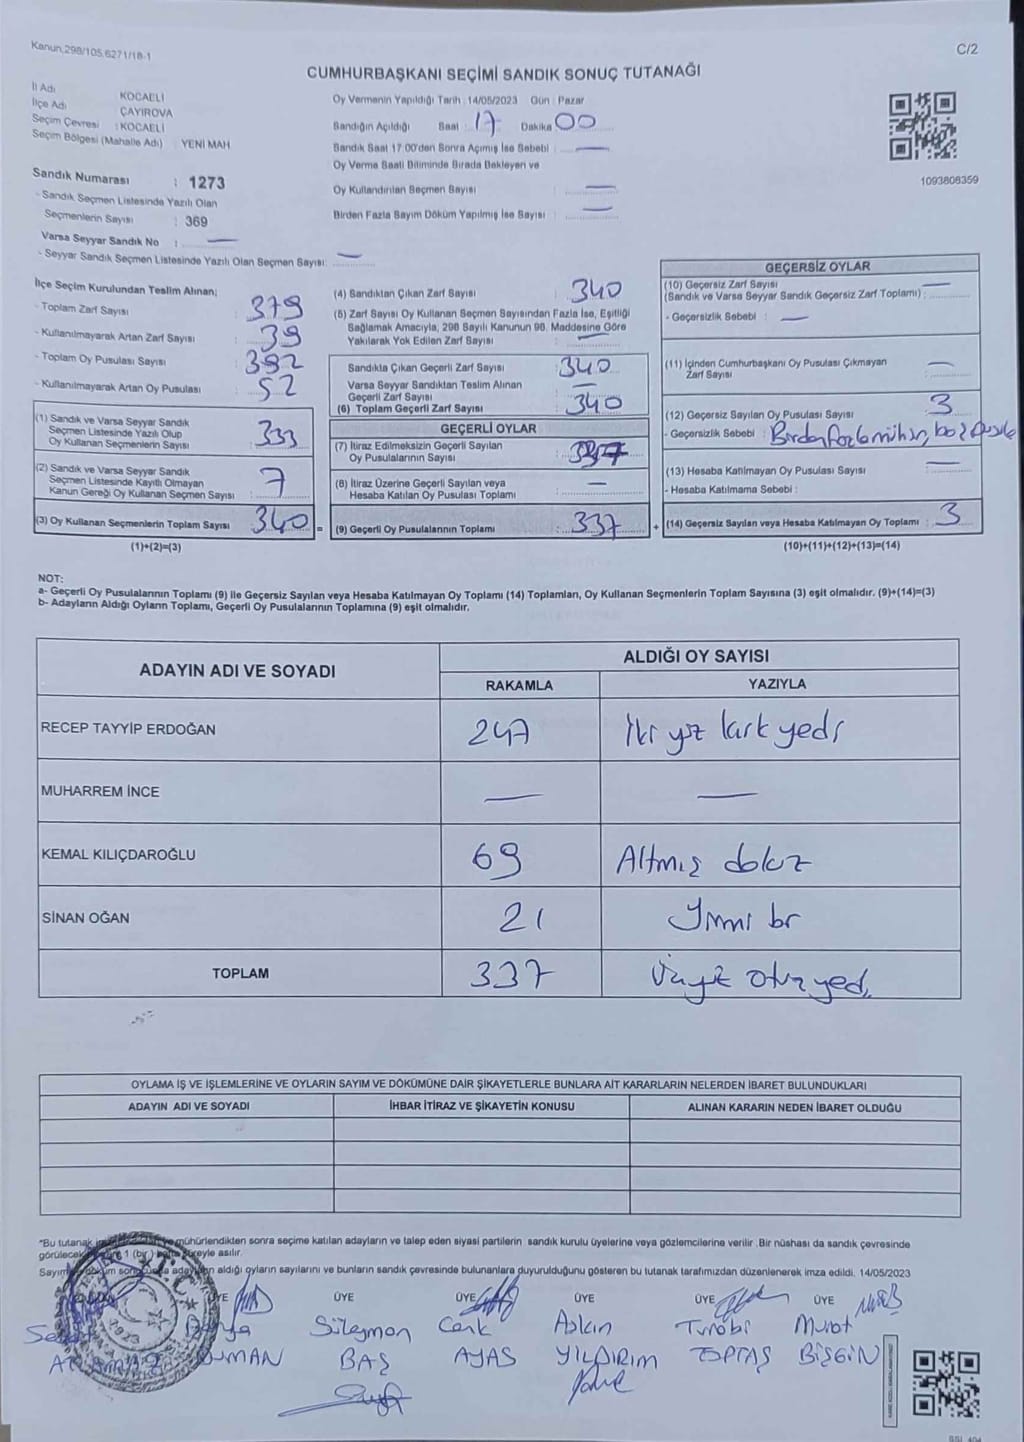 Kanun,298/105,6271/18-1
C/2
CUMHURBAŞKANI SEÇİMİ SANDIK SONUÇ TUTANAĞI
İl Adı KOCAELİ
İlçe Adı ÇAYIROVA
Seçim Çevresi : KOCAELİ
Seçim Bölgesi (Mahalle Adı) YENİ MAH
Sandık Numarası : 1273
- Sandık Seçmen Listesinde Yazılı Olan
Seçmenlerin Sayısı : 369
Varsa Seyyar Sandık No : —
- Seyyar Sandık Seçmen Listesinde Yazılı Olan Seçmen Sayısı: —
Oy Vermenin Yapıldığı Tarih : 14/05/2023 Gün : Pazar
Sandığın Açıldığı Saat : 17 Dakika 00
Sandık Saat 17:00'den Sonra Açımış İse Sebebi : —
Oy Verme Saati Bitiminde Sırada Bekleyen ve
Oy Kullandırılan Seçmen Sayısı : —
Birden Fazla Sayım Döküm Yapılmış İse Sayısı : —
1093806359
İlçe Seçim Kurulundan Teslim Alınan;
- Toplam Zarf Sayısı : 379
- Kullanılmayarak Artan Zarf Sayısı : 39
- Toplam Oy Pusulası Sayısı : 392
- Kullanılmayarak Artan Oy Pusulası : 52
(1) Sandık ve Varsa Seyyar Sandık
Seçmen Listesinde Yazılı Olup
Oy Kullanan Seçmenlerin Sayısı : 333
(2) Sandık ve Varsa Seyyar Sandık
Seçmen Listesinde Kayıtlı Olmayan
Kanun Gereği Oy Kullanan Seçmen Sayısı : 7
(3) Oy Kullanan Seçmenlerin Toplam Sayısı : 340 =
(1)+(2)=(3)
(4) Sandıktan Çıkan Zarf Sayısı : 340
(5) Zarf Sayısı Oy Kullanan Seçmen Sayısından Fazla İse, Eşitliği
Sağlamak Amacıyla, 298 Sayılı Kanunun 98. Maddesine Göre
Yakılarak Yok Edilen Zarf Sayısı : —
Sandıkta Çıkan Geçerli Zarf Sayısı : 340
Varsa Seyyar Sandıktan Teslim Alınan
Geçerli Zarf Sayısı : —
(6) Toplam Geçerli Zarf Sayısı : 340
GEÇERLİ OYLAR
(7) İtiraz Edilmeksizin Geçerli Sayılan
Oy Pusulalarının Sayısı : 337
(8) İtiraz Üzerine Geçerli Sayılan veya
Hesaba Katılan Oy Pusulası Toplamı : —
(9) Geçerli Oy Pusulalarının Toplamı : 337 +
GEÇERSİZ OYLAR
(10) Geçersiz Zarf Sayısı : —
(Sandık ve Varsa Seyyar Sandık Geçersiz Zarf Toplamı) :
- Geçersizlik Sebebi : —
(11) İçinden Cumhurbaşkanı Oy Pusulası Çıkmayan
Zarf Sayısı : —
(12) Geçersiz Sayılan Oy Pusulası Sayısı : 3
- Geçersizlik Sebebi : Birden fazla mühür, boş pusula
(13) Hesaba Katılmayan Oy Pusulası Sayısı : —
- Hesaba Katılmama Sebebi :
(14) Geçersiz Sayılan veya Hesaba Katılmayan Oy Toplamı : 3
(10)+(11)+(12)+(13)=(14)
NOT:
a- Geçerli Oy Pusulalarının Toplamı (9) ile Geçersiz Sayılan veya Hesaba Katılmayan Oy Toplamı (14) Toplamları, Oy Kullanan Seçmenlerin Toplam Sayısına (3) eşit olmalıdır. (9)+(14)=(3)
b- Adayların Aldığı Oyların Toplamı, Geçerli Oy Pusulalarının Toplamına (9) eşit olmalıdır.
ADAYIN ADI VE SOYADI ALDIĞI OY SAYISI
RAKAMLA YAZIYLA
RECEP TAYYİP ERDOĞAN 247 İki yüz kırk yedi
MUHARREM İNCE — —
KEMAL KILIÇDAROĞLU 69 Altmış dokuz
SİNAN OĞAN 21 Yirmi bir
TOPLAM 337 Üçyüz otuz yedi
OYLAMA İŞ VE İŞLEMLERİNE VE OYLARIN SAYIM VE DÖKÜMÜNE DAİR ŞİKAYETLERLE BUNLARA AİT KARARLARIN NELERDEN İBARET BULUNDUKLARI
ADAYIN ADI VE SOYADI İHBAR İTİRAZ VE ŞİKAYETİN KONUSU ALINAN KARARIN NEDEN İBARET OLDUĞU
"Bu tutanak mühürlendikten sonra seçime katılan adayların ve talep eden siyasi partilerin sandık kurulu üyelerine veya gözlemcilerine verilir. Bir nüshası da sandık çevresinde
görülecek 1 (bir) süreyle asılır.
Sayım aldığı oyların sayılarını ve bunların sandık çevresinde bulunanlara duyurulduğunu gösteren bu tutanak tarafımızdan düzenlenerek imza edildi. 14/05/2023
ÜYE ÜYE ÜYE ÜYE ÜYE ÜYE
Süleyman Cenk Aşkın Turabi Murat
BAŞ AYAS YILDIRIM TOPTAŞ BİŞGİN